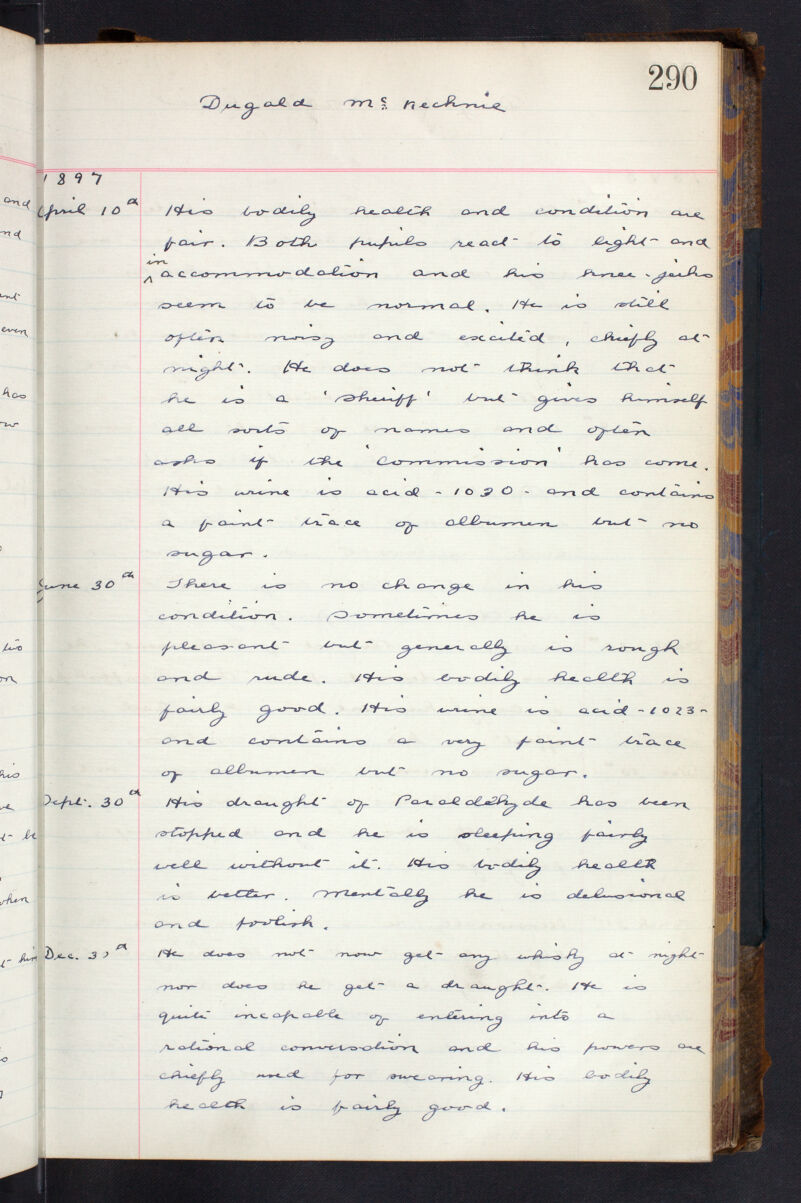 290
Dugald McKechnie
1897
April 10th His bodily health and condition are
fair. Both pupils react to light and
in accommodation and his knee-jerks
seem to be normal. He is still
often noisy and excited, chiefly at
night. He does not think that
he is a 'Sheriff' but gives himself
all sorts of names and often
asks if the 'Commission' has come.
His urine is acid - 1030 - and contains
a faint trace of albumen but no
sugar.
June 30th There is no change in his
condition. Sometimes he is
pleasant but generally is rough
and rude. His bodily health is
fairly good. His urine is acid - 1023 -
and contains a very faint trace
of albumen but no sugar.
Sept. 30th His draught of Paraldehyde has been
stopped and he is sleeping fairly
well without it. His bodily health
is better. Mentally he is delusional
and foolish.
Dec. He does not now get any whisky at night
nor does he get a draught. He is
quite incapable of entering into a
rational conversation and his powers are
chiefly used for swearing. His bodily
health is fairly good.